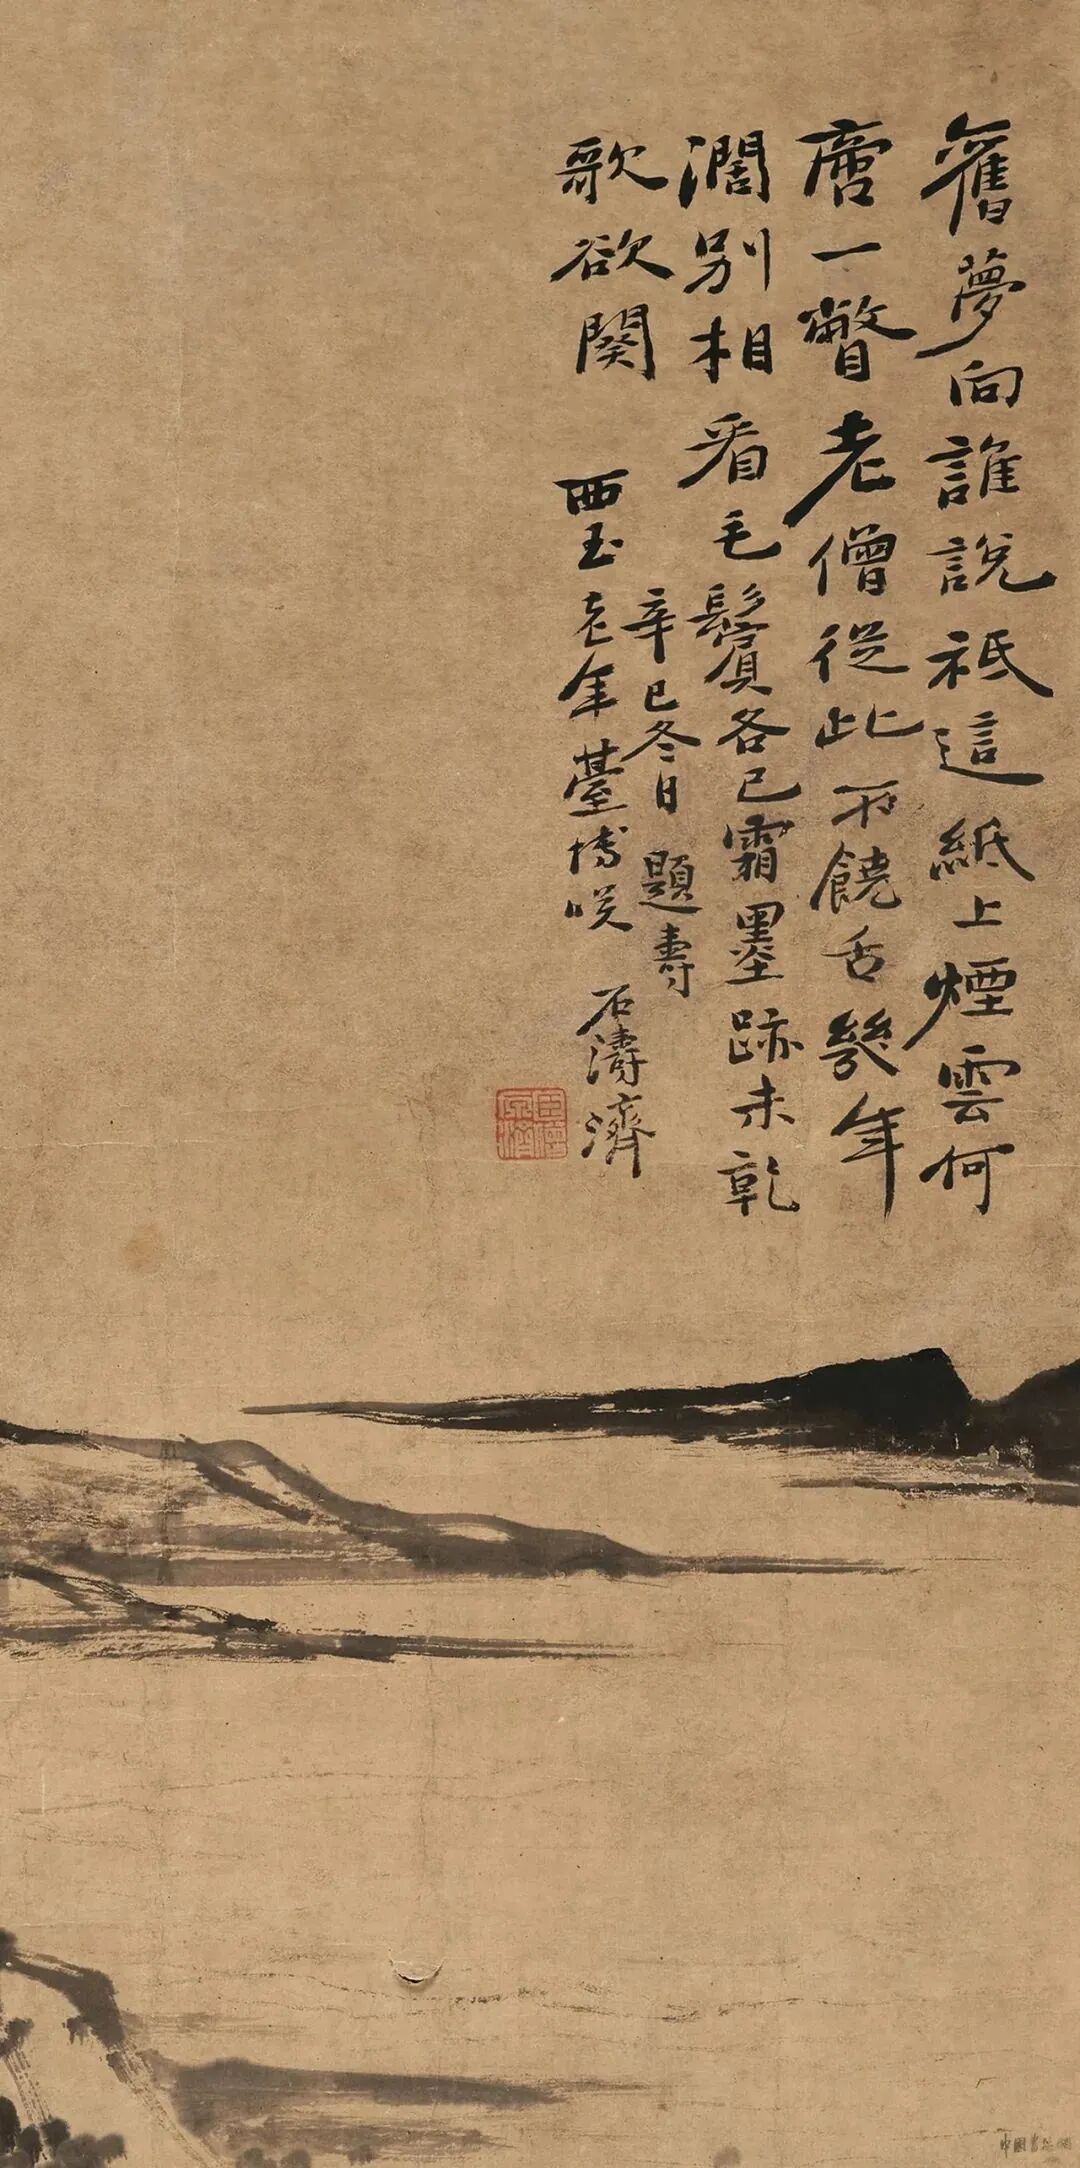 舊夢向誰說祗這紙上煙雲何
啻一瞥老僧從此不饒舌幾年
濶別相看毛鬢各已霜墨跡未乾
歌欲闋
辛巳冬日題壽
西玉老年臺博咲
石濤濟